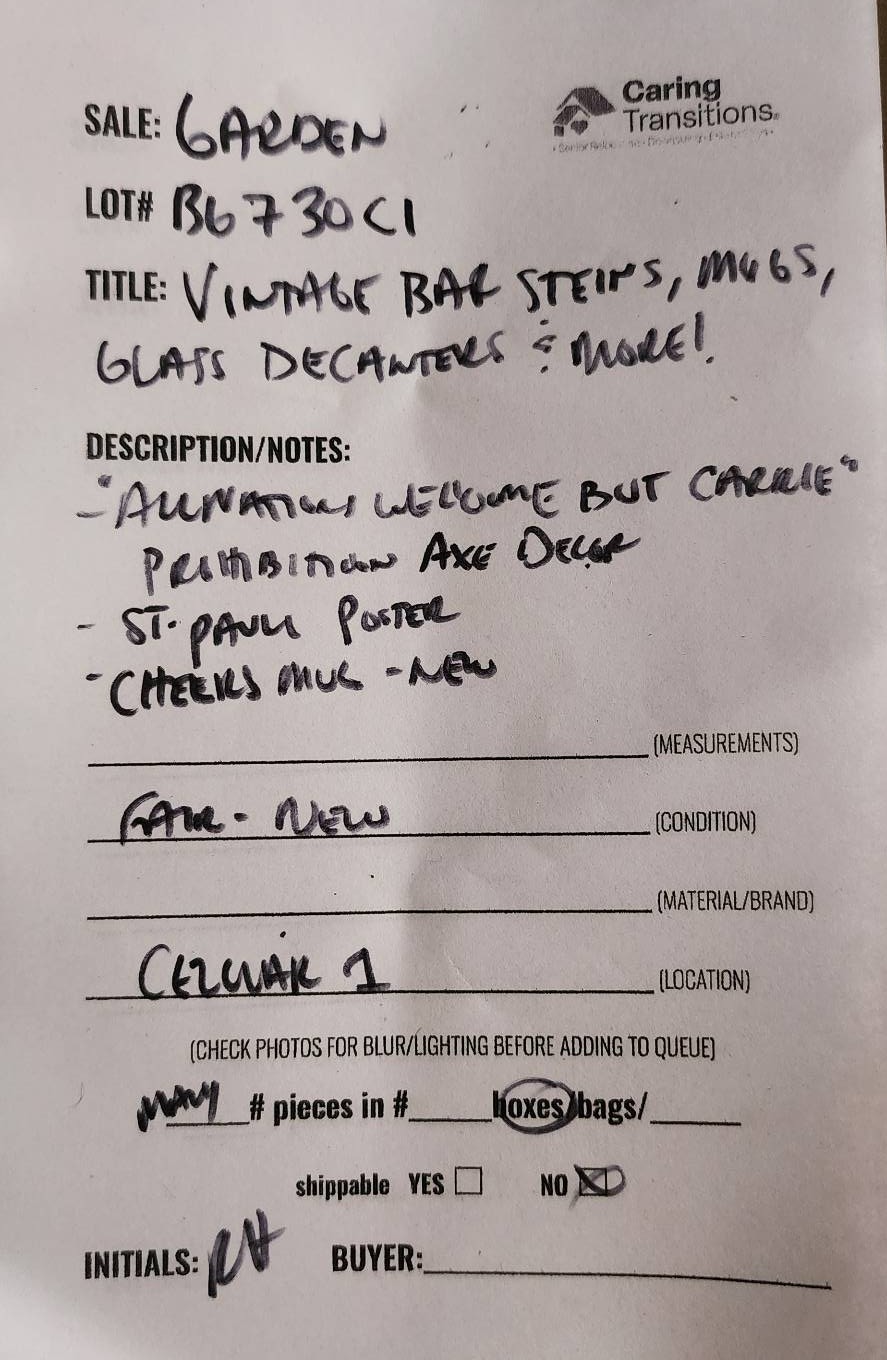 Caring
Transitions
SALE: GARDEN
LOT# B6730C1
TITLE: VINTAGE BAR STEINS, MUGS,
GLASS DECANTERS & MORE!
DESCRIPTION/NOTES:
- "ALL NATIONS WELCOME BUT CARRIE"
PROHIBITION AXE DECOR
- ST. PAULI POSTER
- CHEERS MUG - NEW
(MEASUREMENTS)
FAIR - NEW (CONDITION)
(MATERIAL/BRAND)
CELLAR 1 (LOCATION)
(CHECK PHOTOS FOR BLUR/LIGHTING BEFORE ADDING TO QUEUE)
MANY # pieces in # boxes/bags/
shippable YES ☐ NO ☒
INITIALS: RH BUYER: